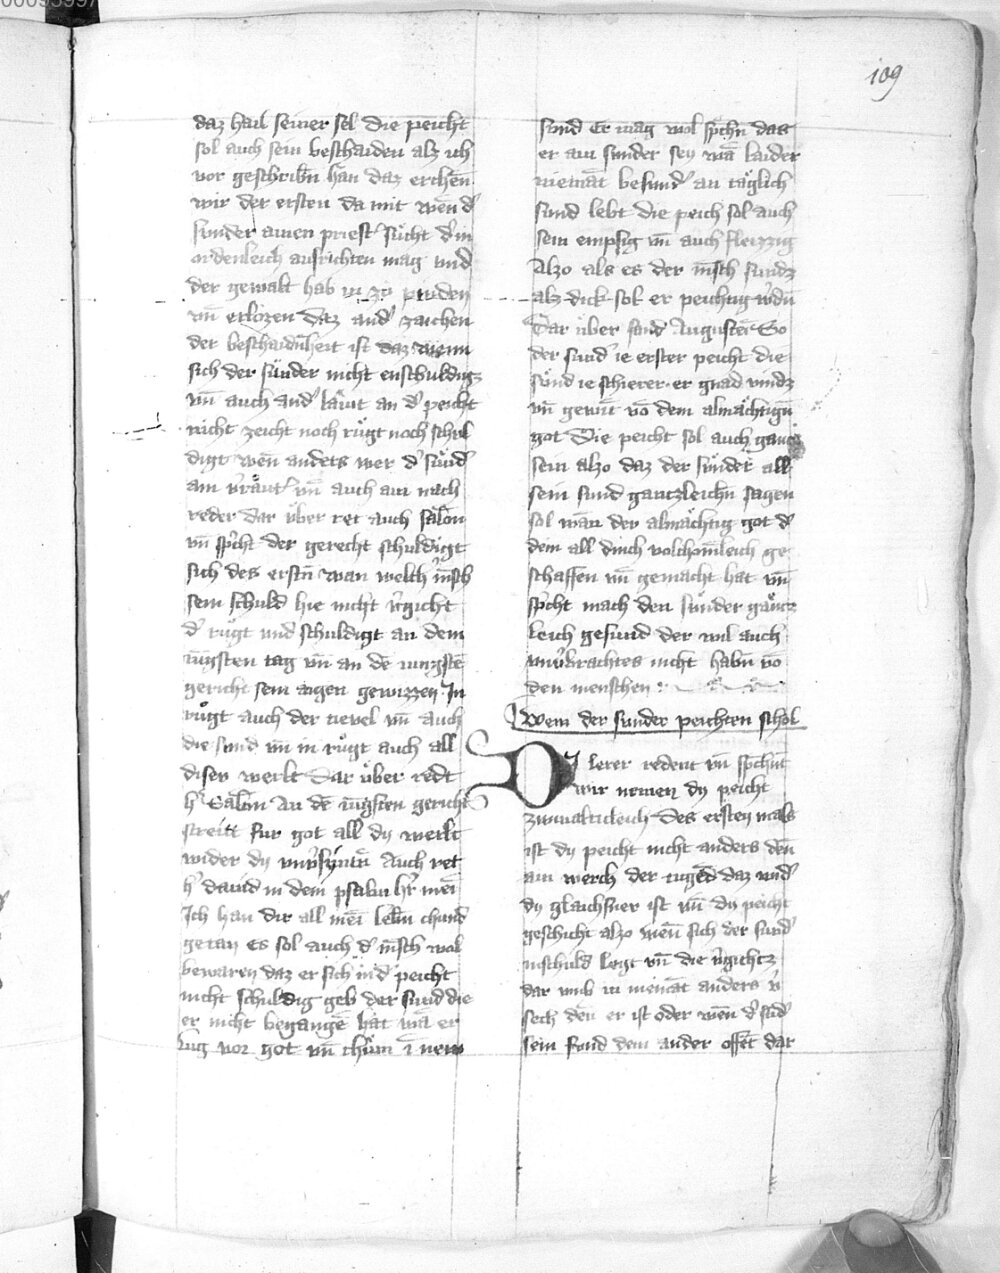 109
daz hail seiner sel die peicht
sol auch sein beschaiden alz ich
vor geschribn̄ han daz erchen̄
wir der ersten da mit wen d'
sunder ainen priest' sůcht d' in
ordenleich ausrichten mag vnd
der gewalt hab in zů pinden
vn̄ erlozen daz and' zaichen
der beschaidn̄heit ist daz wenn
sich der sünder nicht enschuldigt
vn̄ auch and' läwt an d' peicht
nicht zeicht noch růgt noch schul
digt wen̄ anders wer d' sünd'
ain v'räut' vn̄ auch ain nach
reder dar über ret auch salōn
vn̄ sp'cht der gerecht schuldigt
sich des erstn̄ wan welch m̄sch
sein schuld hie nicht v'gicht
d' rugt vnd schuldigt an dem
iūgsten tag vn̄ an dē iungstē
gericht sein aigen gewizzen In
růgt auch der tievel vn̄ auch
die sund vn̄ in růgt auch all
disew werlt Dar über redt
h' Salōn An dē iūgsten gericht
streitt fur got all dy werlt
wider dy Auch ret
h' dauid in dem psalm h'r mei
Ich han dir all mēi lebn̄ chund
getan es sol auch d' m̄sch wol
bewaren daz er sich in d' peicht
nicht schuldig geb der sund die
er nicht begangē hat wā er
lug vor got vn̄ chäm ī new
sünd Er mag wol sp'chn̄ daz
er ain sunder sey wā laider
niemāt besund' an täglich
sund lebt die peich sol auch
sein empsig vn̄ auch fleizzig
Alzo als es der m̄sch sundz
alz dick sol er peichtig w'dn̄
Dar über sand Augustēi So
der sund' ie erster peicht die
sünd ie schierer er gnad vindz
vn̄ gewint vō dem almächtign̄
got Die peicht sol auch gancz
sein alzo daz der sünder all
sein sund gantzleichn̄ sagen
sol wān der almächtig got d'
dein all dinch volchōmleich ge
schaffen vn̄ gemacht hat vn̄
sp'cht mach den sünder gäncz
leich gesund der wil auch
vnv'brachtes nicht habn̄ vō
den menschen :
Wem der sunder peichten schol
DI lerer redent vn̄ sp'chnt
wir nemen dy peicht
zwiualticleich Des ersten mals
ist dy peicht nicht anders den̄
ain werch der tugēd daz vnd'
dy glaichsner ist vn̄ dy peicht
geschicht alzo wen̄ sich der sund'
inschuld legt vn̄ die v'gichtz
dar vmb in niemāt anders v'
sech den̄ er ist oder wen̄ d' sūd'
sein sund dem ander offēt dar